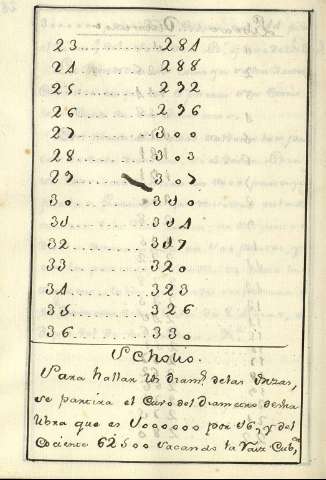 23 ........ 284
24 ........ 288
25 ........ 292
26 ........ 296
27 ........ 300
28 ........ 303
29 ........ 307
30 ........ 310
31 ........ 314
32 ........ 317
33 ........ 320
34 ........ 323
35 ........ 326
36 ........ 330
Scholio.
Para hallar los diam.s de las Onzas,
se partira el Cuvo del Diametro de una
libra que es 1000000 por 16, y del
Cociente 62500 sacando la Raiz Cub.a